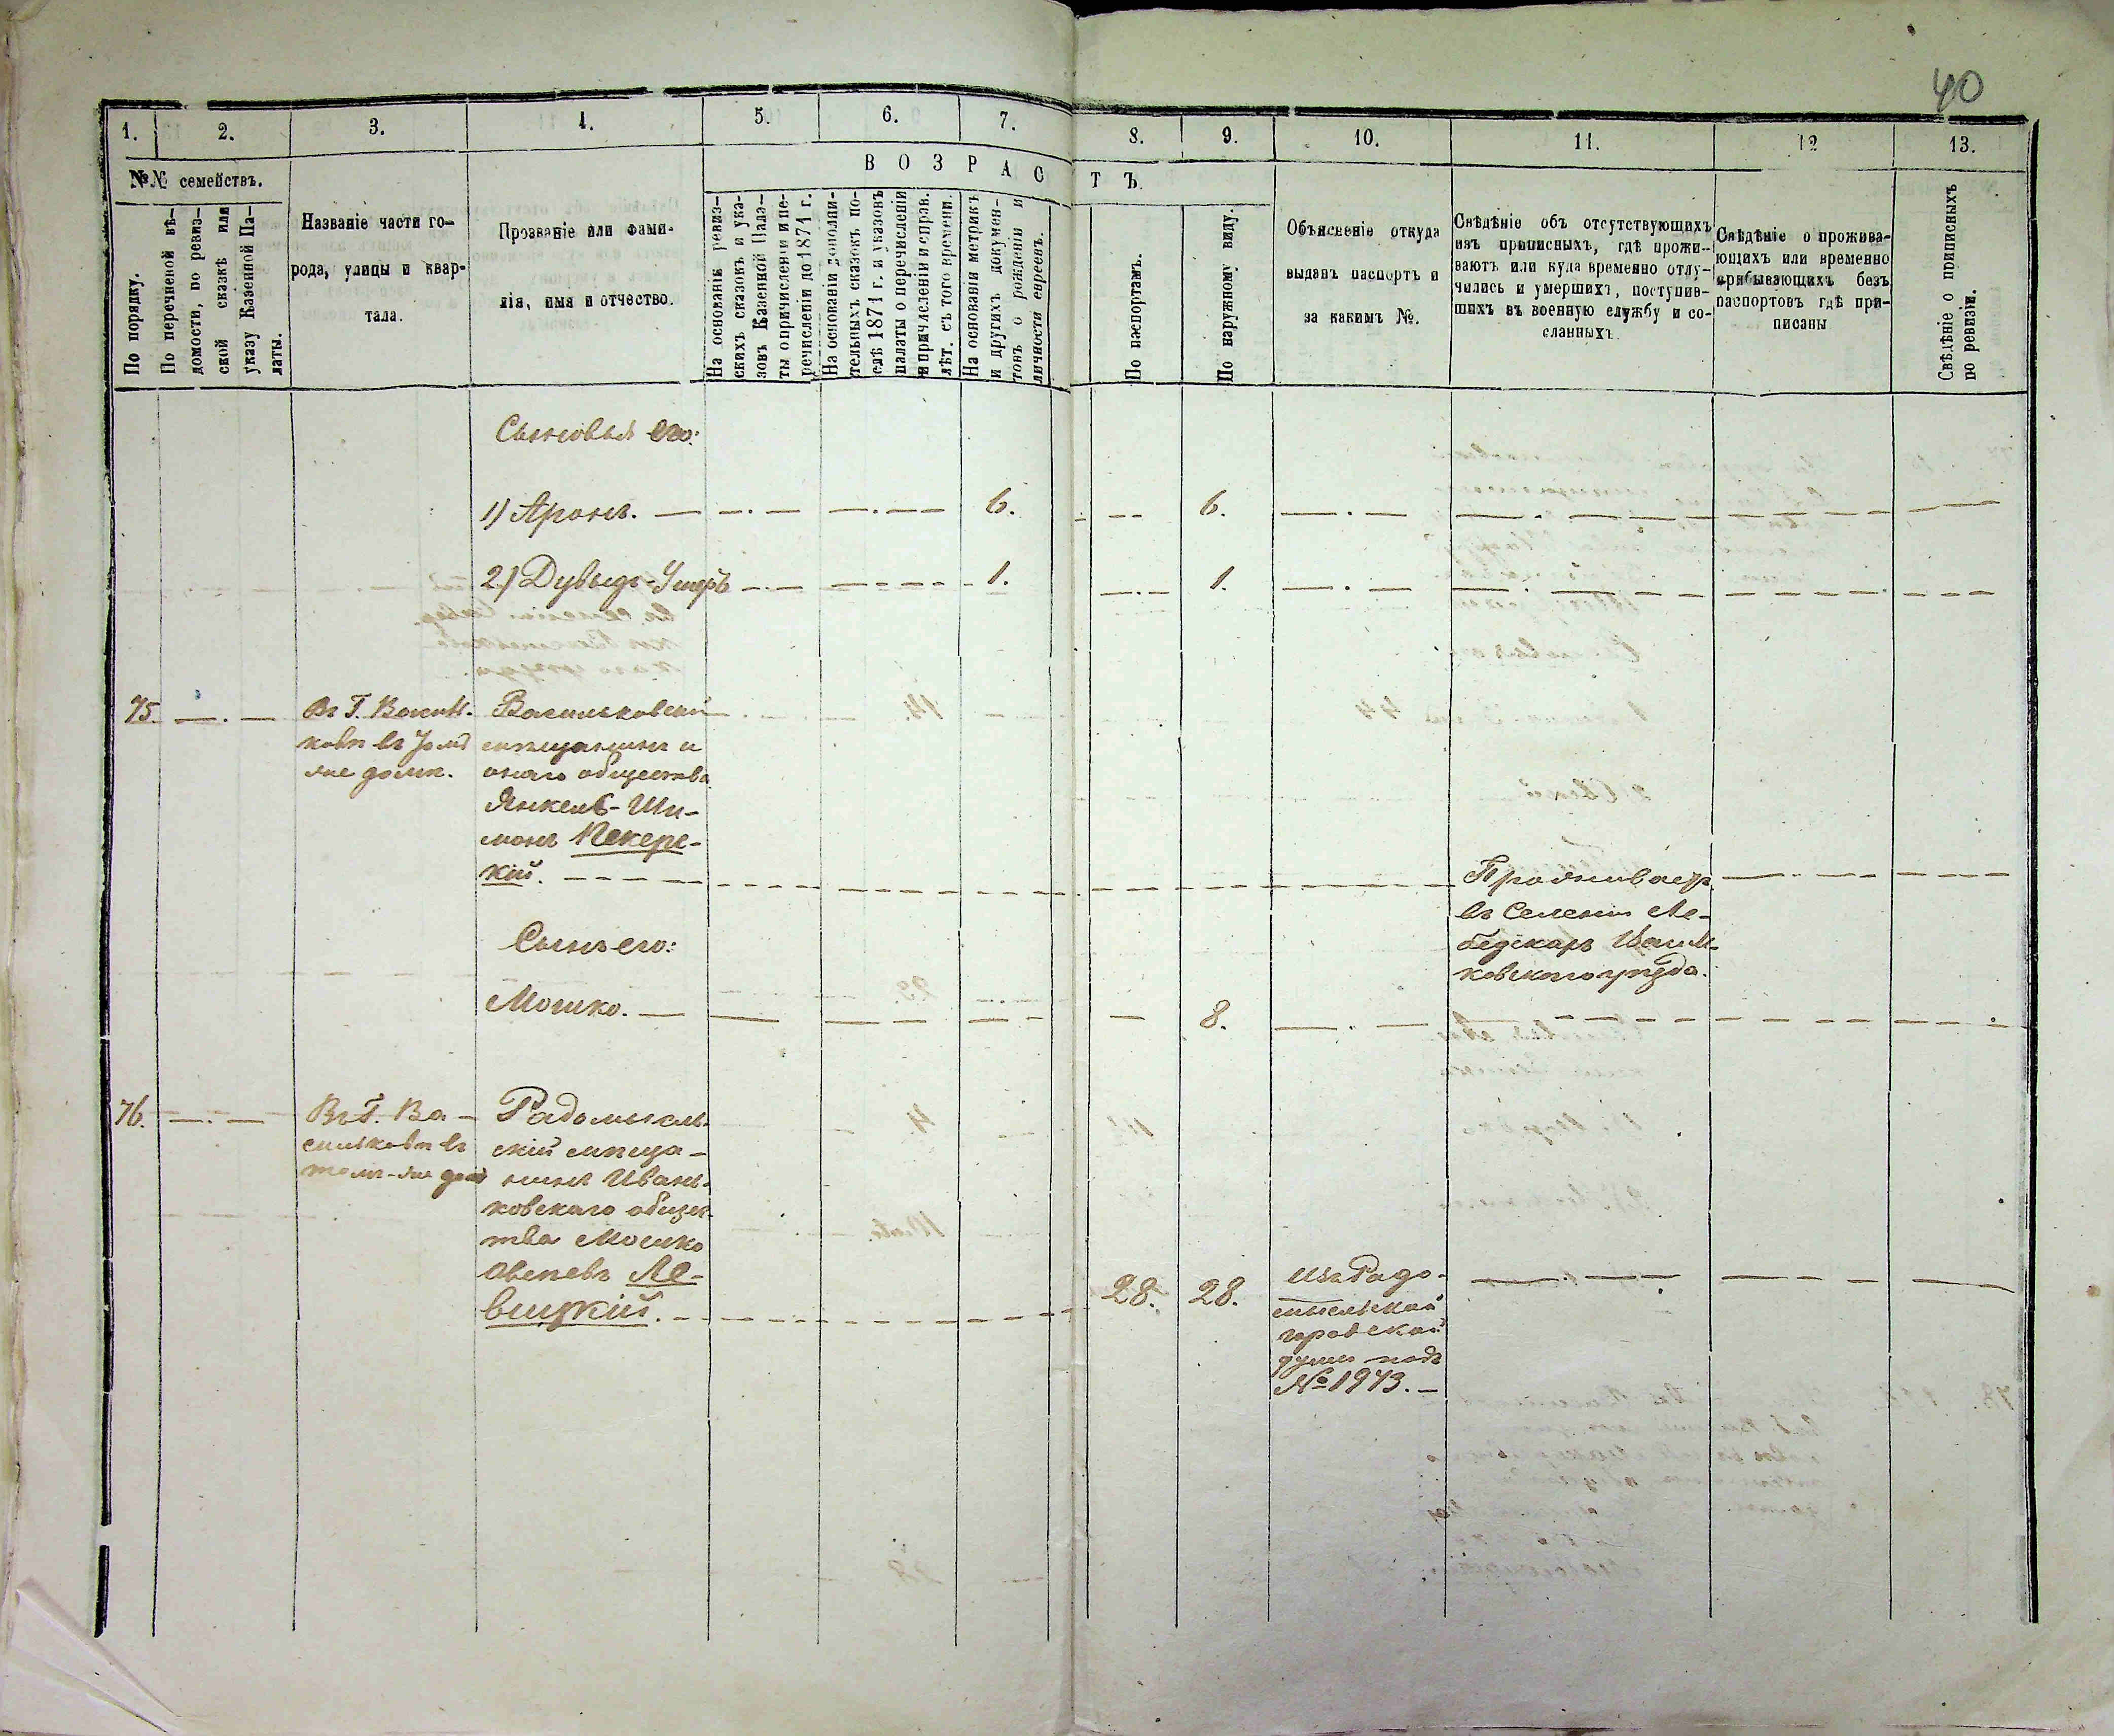 40
1. 2. 3. 4. 5. 6. 7. 8. 9. 10. 11. 12 13.
№№ семействъ.
В О З Р А С Т Ъ
По порядку.
По перечневой вѣ-
домости, по ревиз-
ской сказкѣ или
указу Казенной Па-
латы.
Названіе части го-
рода, улицы и квар-
тала.
Прозваніе или фами-
лія, имя и отчество.
На основаніи ревиз-
скихъ сказокъ и ука-
зовъ Казенной Пала-
ты о причисленіи и пе-
речисленіи до 1871 г.
На основаніи дополни-
тельныхъ сказокъ по-
слѣ 1871 г. и указовъ
палаты о перечисленіи
и причисленіи и справ.
лѣт. съ того времени.
На основаніи метрикъ
и другихъ докумен-
товъ о рожденіи и
личности евреевъ.
По паспортамъ.
По наружному виду.
Объясненіе откуда
выданъ паспортъ и
за какимъ №.
Свѣдѣніе объ отсутствующихъ
изъ приписныхъ, гдѣ прожи-
ваютъ или куда временно отлу-
чились и умершихъ, поступив-
шихъ въ военную службу и со-
сланныхъ
Свѣдѣніе о прожива-
ющихъ или временно
прибывающихъ безъ
паспортовъ гдѣ при-
писаны
Свѣдѣніе о приписныхъ
по ревизіи.
Сыновья его:
1) Аронъ. — 6. 6.
2) Дувыдъ-Ушеръ 1. 1.
75. Въ Г. Василь-
ковѣ въ томъ
же домѣ.
Васильковскій
мѣщанинъ и
онаго общества
Янкель-Ши-
монъ Пекере-
кій.
Проживаетъ
въ Селеніи Ле-
бедскаръ Василь-
ковскаго уѣзда.
Сынъ его:
Мошко. — 8.
76. Въ Г. Ва-
сильковѣ въ
томъ-же домѣ
Радомысль-
скій мѣща-
нинъ Ивань-
ковскаго общес-
тва Мошко
Овсѣевъ Ле-
вицкій. 28. 28.
Изъ Радо-
мысльской
городской
думы подъ
№ 1973. —